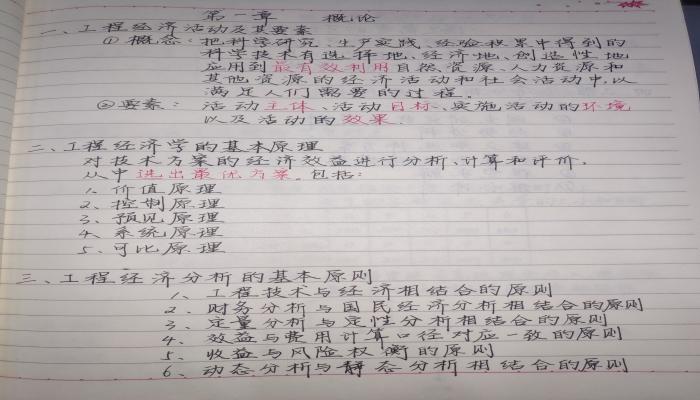 第一章 概论
一、工程经济活动及其要素
①概念：把科学研究、生产实践、经验积累中得到的
科学技术有选择地、经济地、创造性地
应用到最有效利用自然资源、人力资源和
其他资源的经济活动和社会活动中,以
满足人们需要的过程.
②要素：活动主体、活动目标、实施活动的环境
以及活动的效果.
二、工程经济学的基本原理
对技术方案的经济效益进行分析、计算和评价.
从中选出最优方案.包括：
1、价值原理
2、控制原理
3、预见原理
4、系统原理
5、可比原理
三、工程经济分析的基本原则
1、工程技术与经济相结合的原则
2、财务分析与国民经济分析相结合的原则
3、定量分析与定性分析相结合的原则
4、效益与费用计算口径对应一致的原则
5、收益与风险权衡的原则
6、动态分析与静态分析相结合的原则